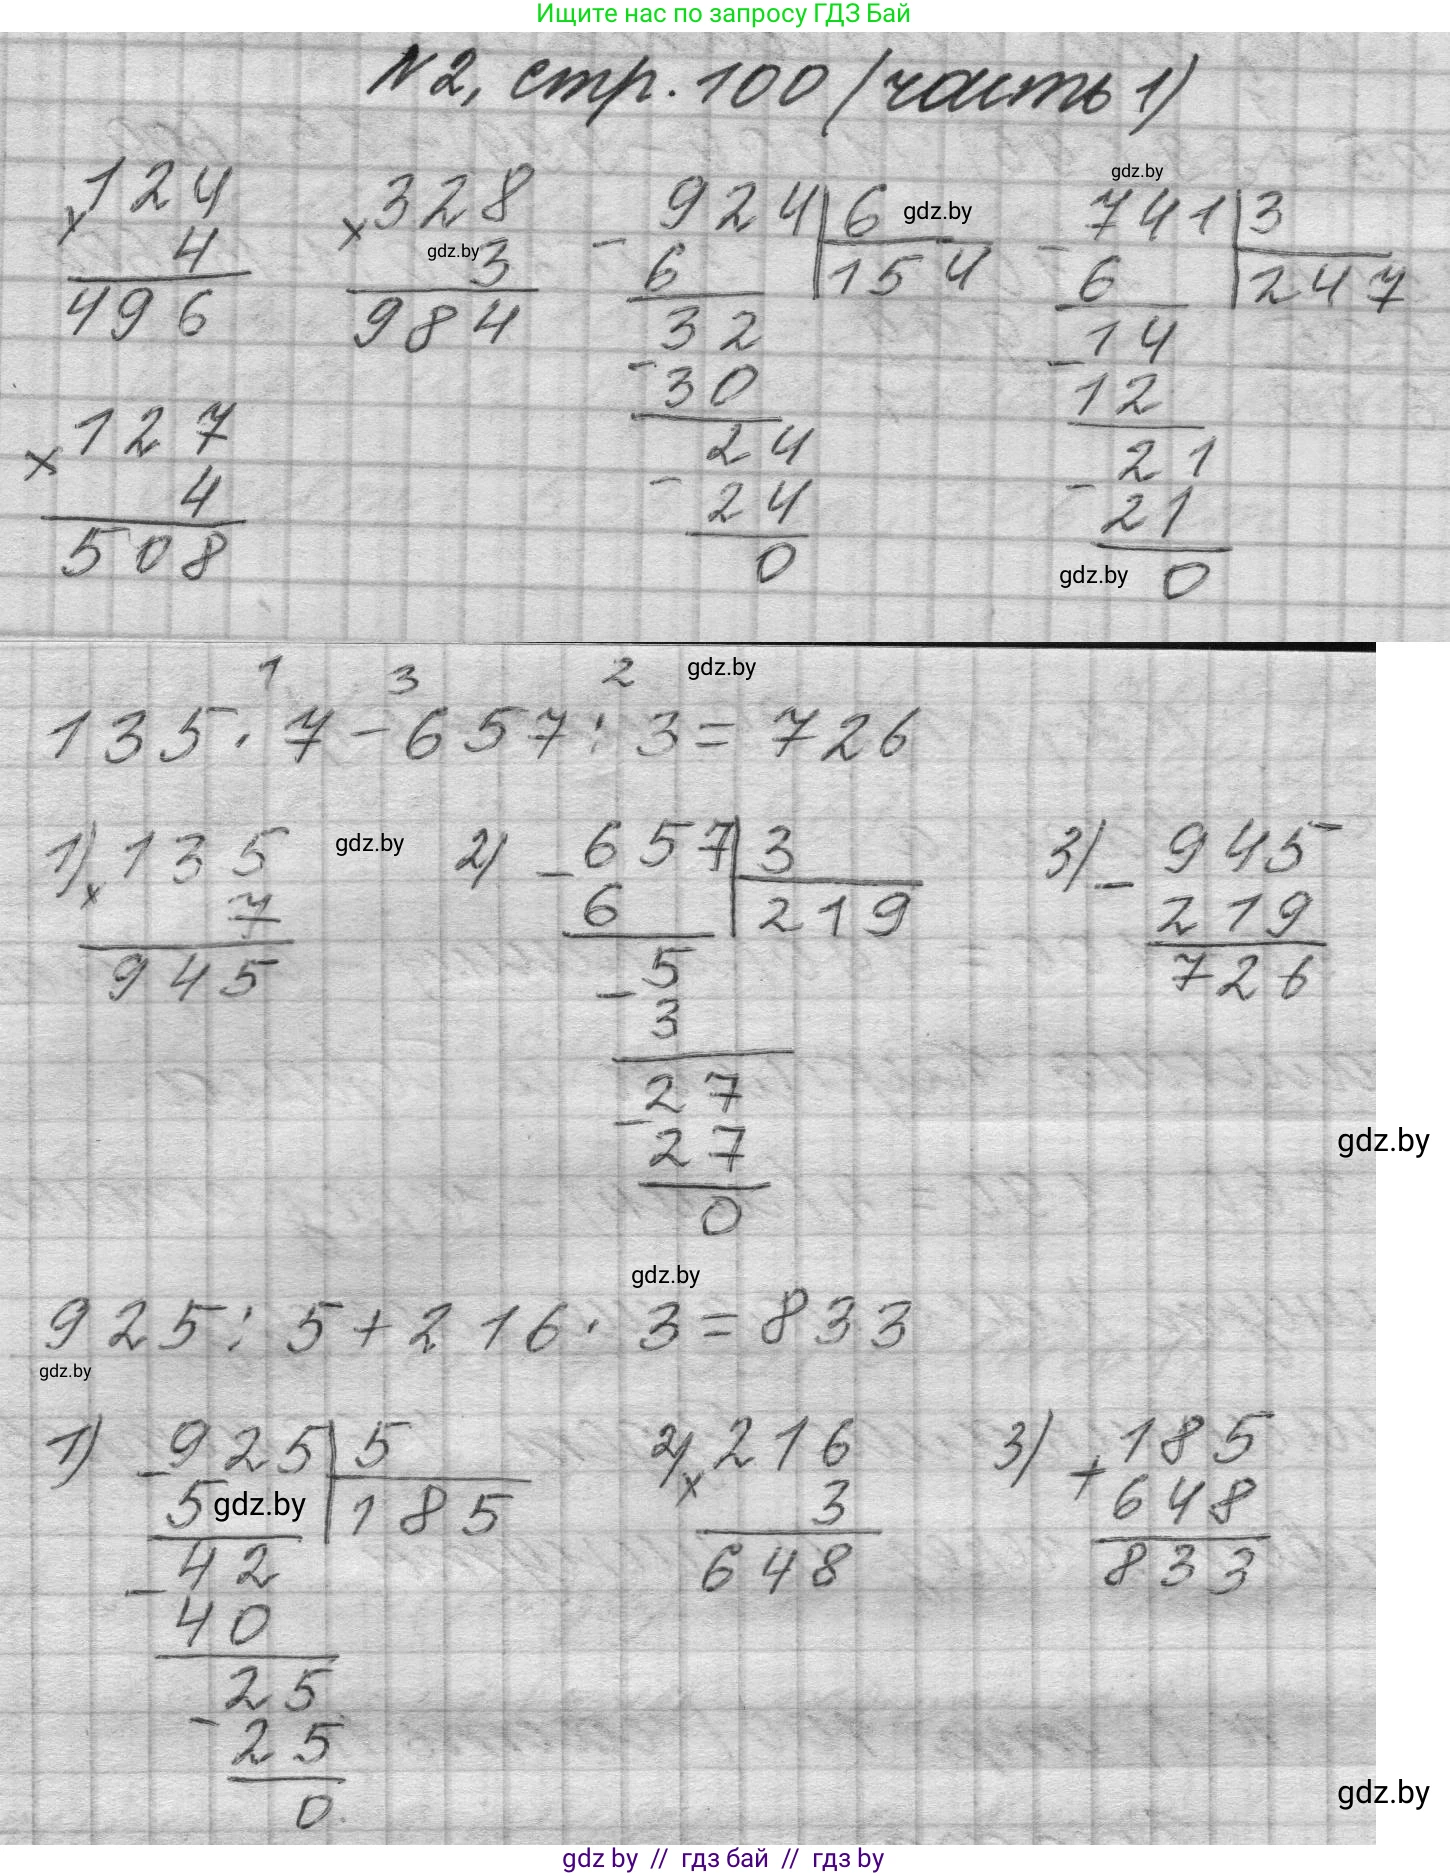 Ищите нас по запросу ГДЗ Бай
N2, стр. 100 (часть 1)
gdz.by
× 124
4
496
× 328
gdz.by
3
984
− 924 | 6
gdz.by
6 | 154
32
− 30
24
− 24
0
− 741 | 3
6 | 247
14
− 12
21
− 21
gdz.by
0
× 127
4
508
1 3 2
gdz.by
135 · 7 − 657 : 3 = 726
1) × 135
7
945
gdz.by
2) − 657 | 3
6 | 219
5
− 3
27
− 27
0
3) − 945
219
726
gdz.by
gdz.by
925 : 5 + 216 · 3 = 833
gdz.by
1) − 925 | 5
5 | 185
gdz.by
42
− 40
25
− 25
0
2) × 216
3
648
3) + 185
648
833
gdz.by
gdz by // гдз бай // гдз by